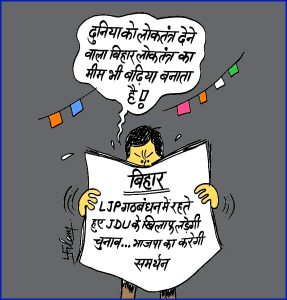 दुनिया को लोकतंत्र देने
वाला बिहार लोकतंत्र का
मीम भी बढ़िया बनाता
है!
बिहार
LJP गठबंधन में रहते
हुए JDU के खिलाफ लड़ेगी
चुनाव... भाजपा का करेगी
समर्थन